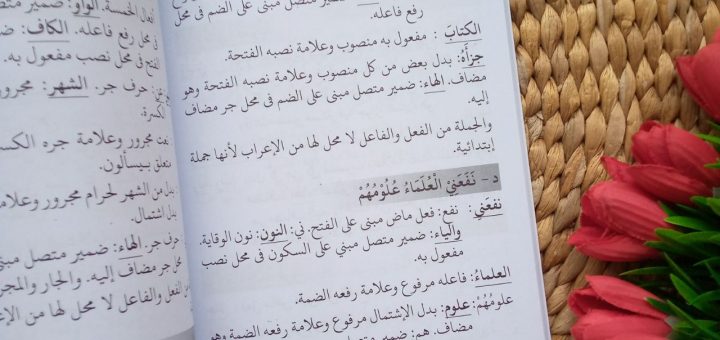 رفع فاعله.
الكتابَ : مفعول به منصوب وعلامة نصبه الفتحة.
جزأَه: بدل بعض من كل منصوب وعلامة نصبه الفتحة وهو
مضاف. الهاء: ضمير متصل مبنى على الضم فى محل جر مضاف
إليه.
والجملة من الفعل والفاعل لا محل لها من الإعراب لأنها جملة
إبتدائية.
د - نَفَعَنِيْ الْعُلَمَاءُ عُلُوْمُهُمْ
نفعَني: نفع: فعل ماض مبنى على الفتح. ني: النون: نون الوقاية.
والياء: ضمير متصل مبني على السكون فى محل نصب
مفعول به.
العلماءُ: فاعله مرفوع وعلامة رفعه الضمة.
علومُهُمْ: علوم: بدل الإشتمال مرفوع وعلامة رفعه الضمة وهو
مضاف. هم: ضمير متصل
فعال الخمسة. الواو: ضمير متصل
فى محل رفع فاعله. الكاف: ضم
الفتح فى محل نصب مفعول به.
حرف جر. الشهر: مجرور
الكسرة.
نعت مجرور وعلامة جره الكس
متعلق بـيسألون.
بدل من الشهر لحرام مجرور وعلام
بدل اشتمال.
حرف جر. الهاء: ضمير متصل مبنى
محل جر مضاف إليه. والجار والمجر
الفعل والفاعل لا محل لها من الإع